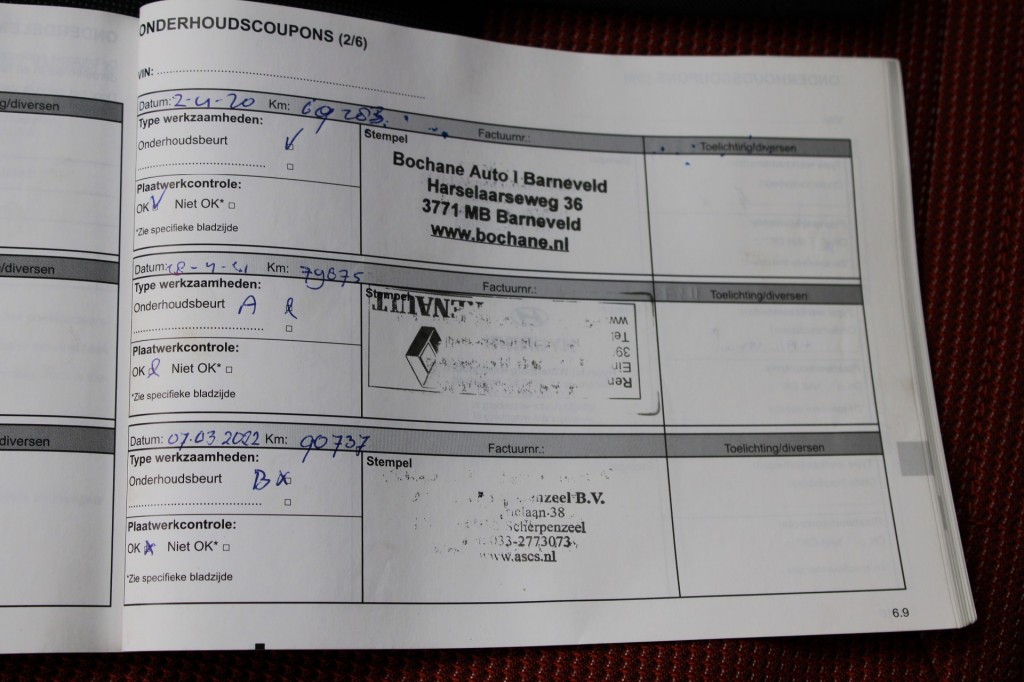 ONDERHOUDSCOUPONS (2/6)
VIN:
g/diversen
Datum: 2-4-20 Km: 69283
Factuurnr.:
Toelichting/diversen
Type werkzaamheden:
Onderhoudsbeurt
Plaatwerkcontrole:
OK Niet OK*
*Zie specifieke bladzijde
Stempel
Bochane Auto I Barneveld
Harselaarseweg 36
3771 MB Barneveld
www.bochane.nl
/diversen
Datum: Km: 79875
Factuurnr.:
Toelichting/diversen
Type werkzaamheden:
Onderhoudsbeurt A
Plaatwerkcontrole:
OK Niet OK*
*Zie specifieke bladzijde
Stempel
RENAULT
ww
Tel
39
Ein
Ren
diversen
Datum: 07.03 2022 Km: 90737
Factuurnr.:
Toelichting/diversen
Type werkzaamheden:
Onderhoudsbeurt B
Plaatwerkcontrole:
OK Niet OK*
*Zie specifieke bladzijde
Stempel
enzeel B.V.
elaan 38
Scherpenzeel
033-2773073
www.ascs.nl
6.9